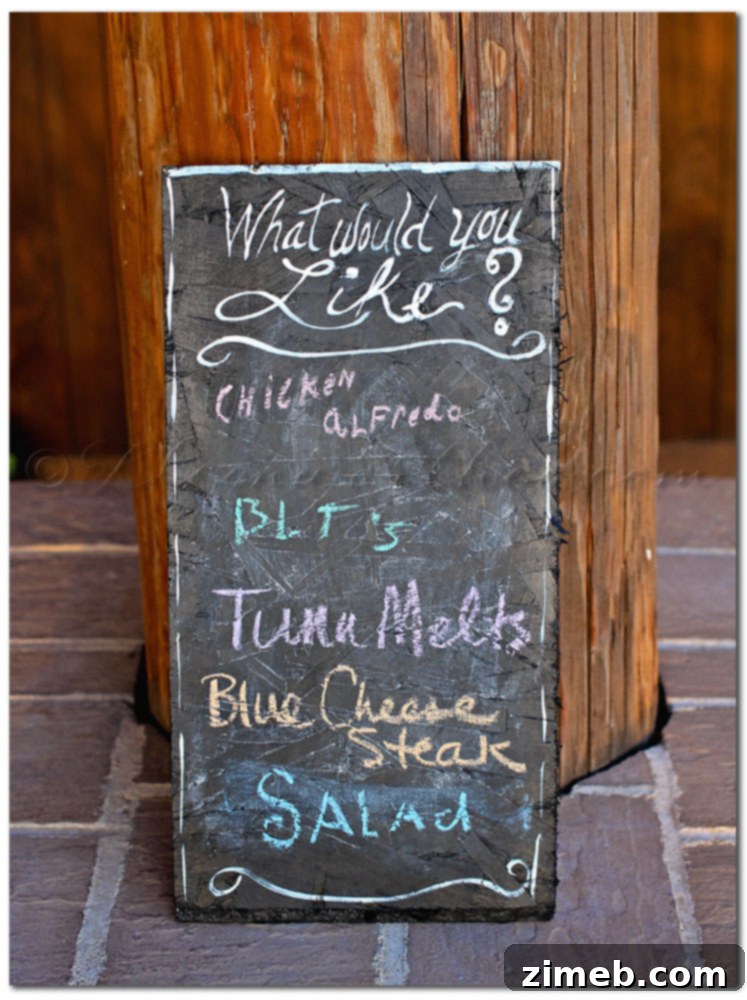 What would you
Like?
CHicKeN
aLFredo
BLT's
Tuna Melts
Blue Cheese
Steak
SALAd
zimeb.com